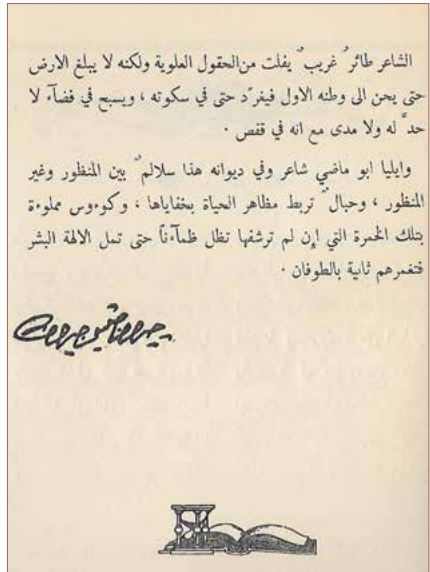 الشاعر طائرٌ غريبٌ يفلت من الحقول العلوية ولكنه لا يبلغ الارض
حتى يحن الى وطنه الاول فيغرّد حتى في سكوته ، ويسبح في فضآء لا
حدَّ له ولا مدى مع انه في قفص ·
وايليا ابو ماضي شاعر وفي ديوانه هذا سلالمٌ بين المنظور وغير
المنظور ، وحبالٌ تربط مظاهر الحياة بخفاياها ، وكوءوس مملوءة
بتلك الخمرة التي إن لم ترشفها تظل ظمآءناً حتى تمل الالهة البشر
فتغمرهم ثانية بالطوفان ·
جبران خليل جبران